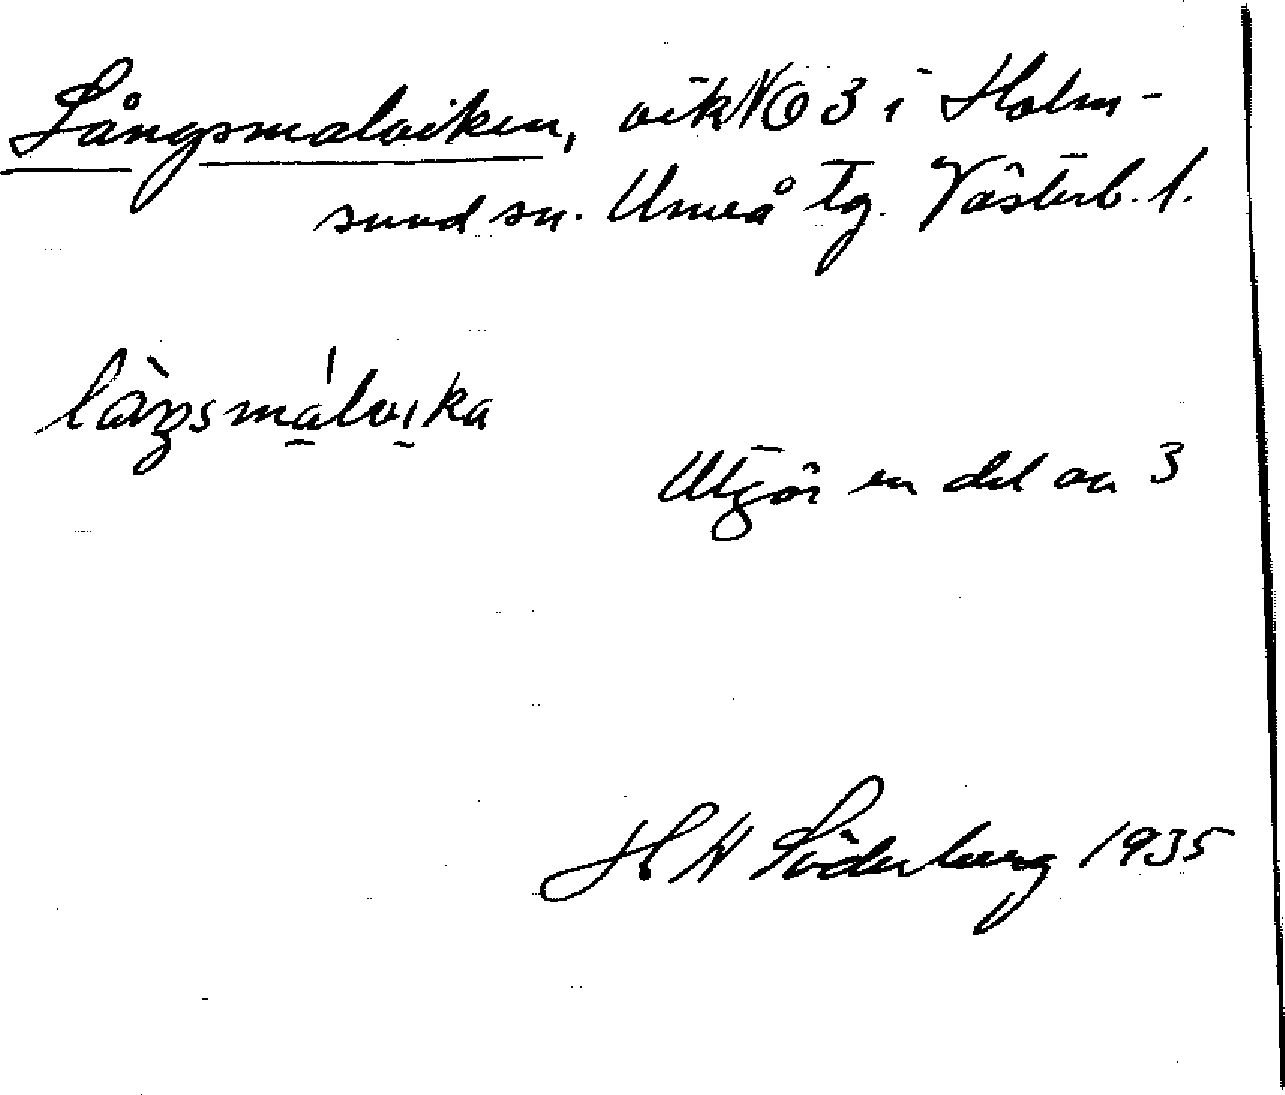 Långsmalviken, vik NO 3 i Holm-
sund sn. Umeå tg. Västerb. l.
làŋsmálvika
Utgör en del av 3
H W Söderberg 1935